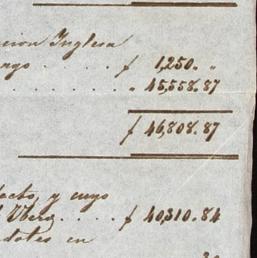 cion Inglesa
ngo . . . . . . ƒ 1,250. "
. . . . . . . . . " 45,558.87
ƒ 46,808.87
fecto, y cuyo
. . . . . ƒ 40,310.84
dotes en